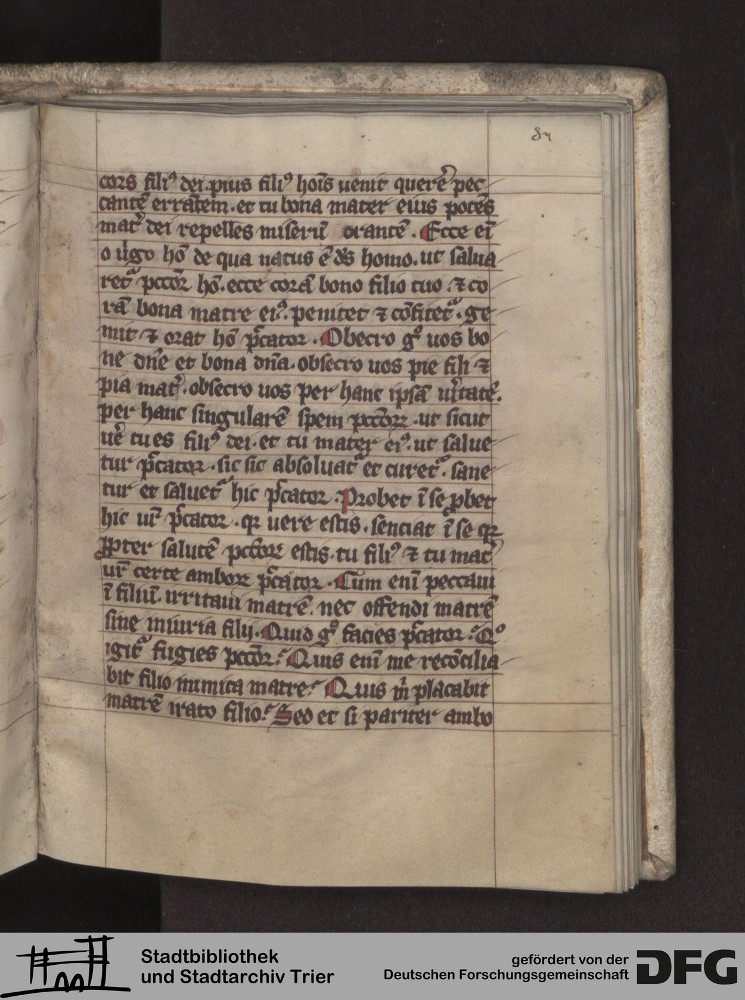 87
cors fili⁹ dei. pius fili⁹ hoı̅s uenit querē pec
cantē errātem. et tu bona mater eius potēs
mat᷒ dei repelles miserū orantē. Ecce eı̅
o uı̅go hō de qua natus ē dꝰs homo. ut salua
ret᷒ pccōꝛ hō. ecce corā bono filio tuo. ⁊ co
rā bona matre ei⁹. penitet ⁊ cōfitet᷒. ge
mit ⁊ orat hō pc̄cator. Obsecro gͦ uos bo
ne dn̄e et bona dn̄a. obsecro uos pie fili ⁊
pia mat᷒. obsecro uos per hanc ipsā uı̅tatē.
per hanc singularē spem pccōꝝ. ut sicut
uē tu es fili⁹ dei. et tu mater ei⁹. ut salue
tur pc̄cator. sic sic absoluat᷒ et curet᷒. sane
tur et saluet᷒ hic pc̄cator. Probet ı̅ se ꝓbet
hic ur̄ pc̄cator. qꝛ uere estis. senciat ı̅ se qꝛ
ꝓpter salutē pccōꝝ estis. tu fili⁹ ⁊ tu mat᷒
ur̄ certe amboꝝ pc̄cator. Cum enı̅ peccaui
ı̅ filiū. irritaui matrē. nec offendi matrē
sine iniuria filij. Quid gͦ facies pc̄cator? Qͦ
igit᷒ fugies pccōꝛ? Quis enı̅ me recōcilia
bit filio inimica matre? Quis m̄ placabit
matrē irato filio? Sed et si pariter ambo
Stadtbibliothek
und Stadtarchiv Trier
gefördert von der
Deutschen Forschungsgemeinschaft
DFG